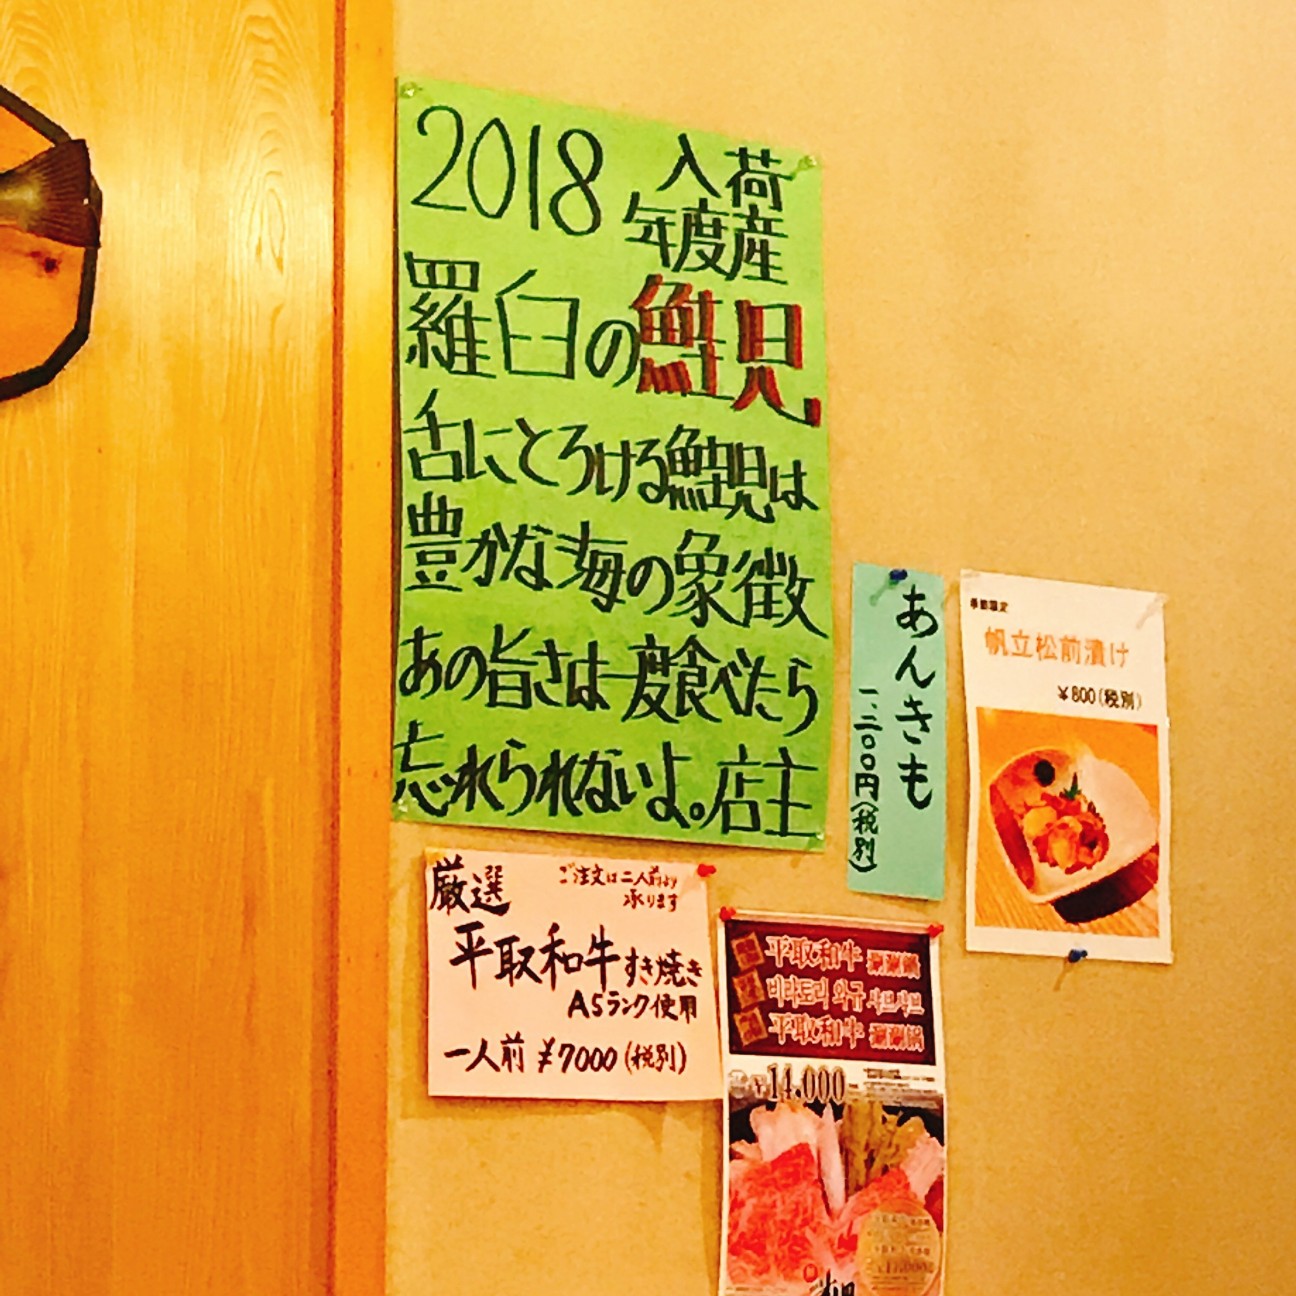 2018 入荷
年度産
羅臼の鮭児
舌にとろける鮭児は
豊かな海の象徴
あの旨さは一度食べたら
忘れられないよ。店主
あんきも
一、二〇〇円(税別)
季節限定
帆立松前漬け
¥800(税別)
厳選
ご注文は二人前より
承ります
平取和牛すき焼き
A5ランク使用
一人前 ¥7000(税別)
平取和牛 涮涮鍋
비라토리 와규 샤브샤브
平取和牛 涮涮锅
¥14,000